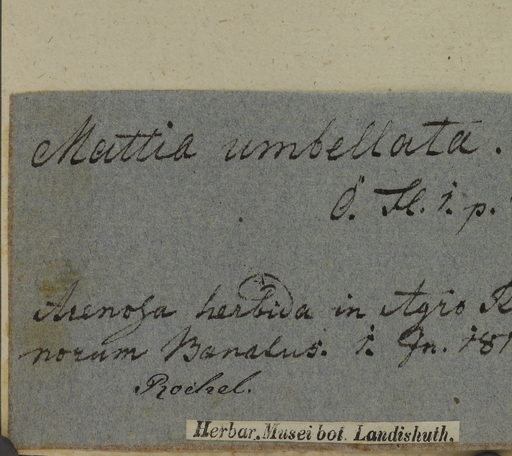 Mattia umbellata.
Ö. Fl. 1. p.
Arenosa herbida in Agro
norum Banatus. 1. Jn. 181
Rochel.
Herbar. Musei bot. Landishuth.